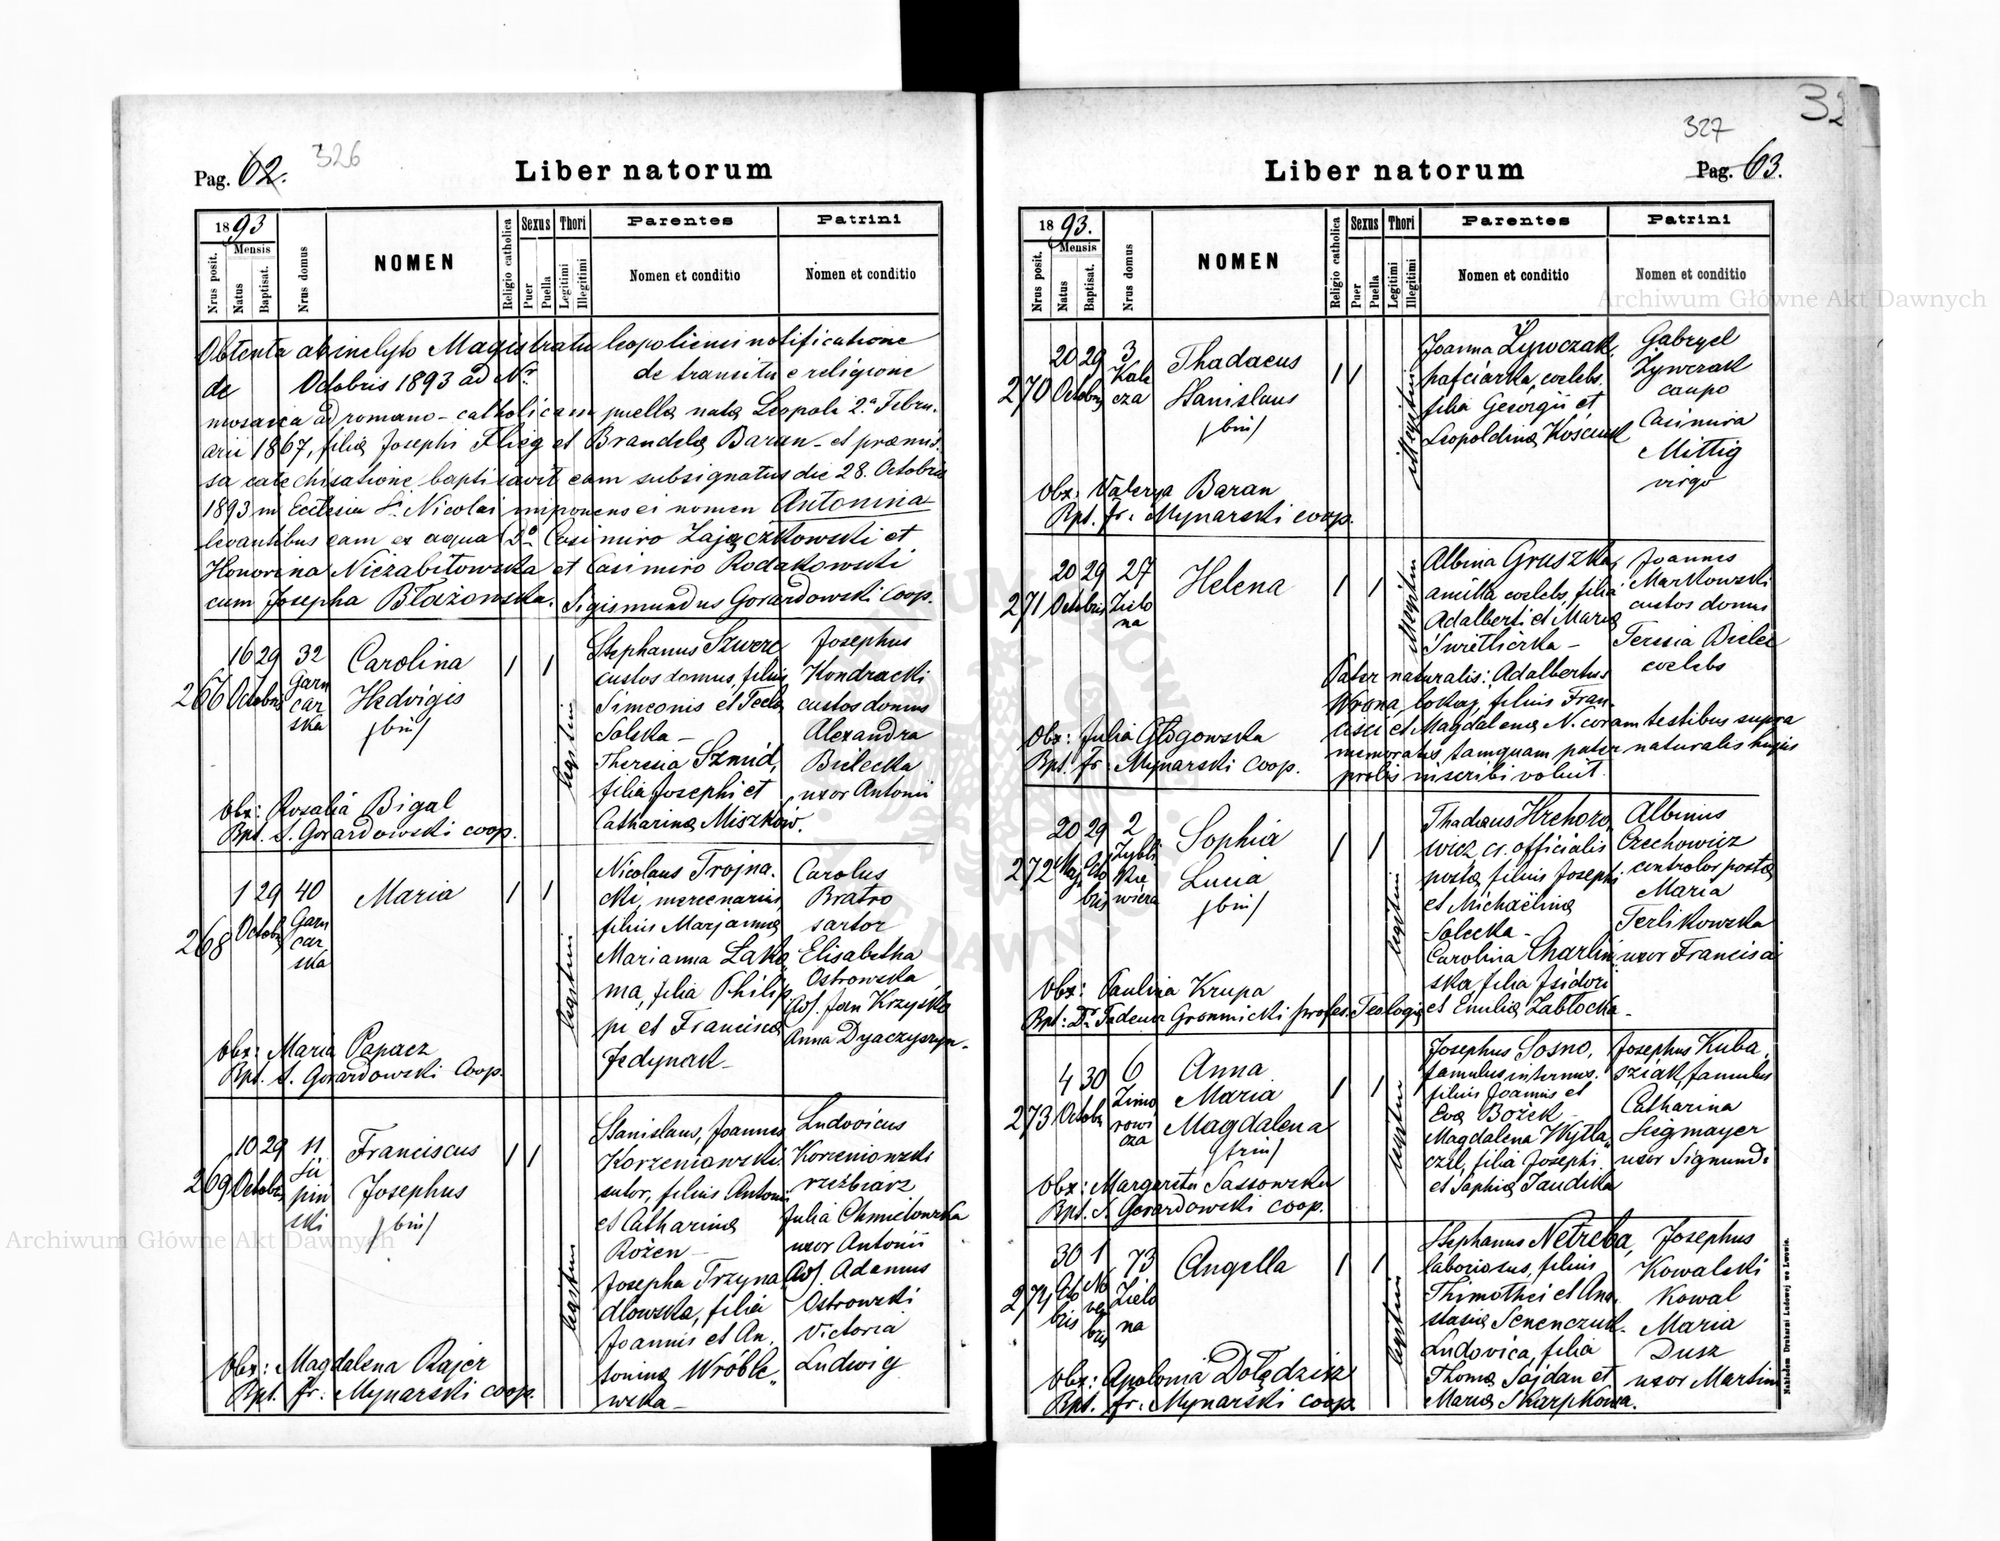 Pag. 62. 326
Liber natorum
1893
Nrus posit.
Mensis
Natus
Baptisat.
Nrus domus
NOMEN
Religio catholica
Sexus
Puer
Puella
Thori
Legitimi
Illegitimi
Parentes
Nomen et conditio
Patrini
Nomen et conditio
Obtenta ab inclyto Magistratu leopoliensi notificatione
de Octobris 1893 ad Nr. de transitu e religione
mosaica ad romano-catholicam puellę natę Leopoli 2.a Febru-
arii 1867, filię Josephi Flieg et Brandelę Baran - et præmis-
sa catechisatione baptisavit eam subsignatus die 28. Octobris
1893 in Ecclesia S. Nicolai imponens ei nomen Antonina
levantibus eam ex aqua Do Casimiro Zajączkowski et
Honorina Niezabitowska et Casimiro Rodakowski
cum Josepha Błażowska. Sigismundus Gorardowski coop.
266
16 29
Octobris
32
Garn
car
ska
Carolina
Hedvigis
/bin/
legitimi
Stephanus Szwerc
custos domus, filius
Simeonis et Teclę
Solska -
Theresia Szmid,
filia Josephi et
Catharinę Miszków.
Josephus
Kondracki
custos domus
Alexandra
Bielecka
uxor Antonii
Obx: Rosalia Bigal
Bpt. S. Gorardowski coop.
268
1 29
Octobr
40
Garn
car
ska
Maria
legitimi
Nicolaus Trojna-
cki, mercenarius,
filius Marjannę
Marianna Łako
ma, filia Philip
pi et Franciscę
Jedynak -
Carolus
Bratro
sartor
Elisabetha
Ostrowska
Adj. Jan Krzyśko
Anna Dyaczyszyn.
Obx: Maria Papacz
Bpt. S. Gorardowski Coop.
269
10 29
Octobris
11
Su
piń
ski
Franciscus
Josephus
/bin/
legitimi
Stanislaus, Joannes
Korzeniowski
sutor, filius Antonii
et Catharinę
Rożen -
Josepha Trzyna
dlowska, filia
Joannis et An-
toninę Wróble
wska -
Ludovicus
Korzeniowski
rzeźbiarz
Julia Chmielowska
uxor Antonii
Adj. Adamus
Ostrowski
Victoria
Ludwig
Obx: Magdalena Rajer
Bpt. fr: Mynarski coop.
327
Liber natorum
Pag. 63.
1893.
Nrus posit.
Mensis
Natus
Baptisat.
Nrus domus
NOMEN
Religio catholica
Sexus
Puer
Puella
Thori
Legitimi
Illegitimi
Parentes
Nomen et conditio
Patrini
Nomen et conditio
270
20 29
Octobris
3
Kale
cza
Thadaeus
Stanislaus
/bin/
illegitimi
Joanna Żywczak,
hafciarka, coelebs.
filia Georgii et
Leopoldinę Kościuk
Gabryel
Żywczak
caupo
Casimira
Mittig
virgo
Obx: Valerya Baran
Bpt. fr: Mynarski coop.
271
20 29
Octobris
27
Zielo
na
Helena
illegitimi
Albina Gruszka,
amilla coelebs, filia
Adalberti et Marię
Świetlicka -
Joannes
Markowski
custos domus
Teresia Bielec
coelebs
Pater naturalis: Adalbertus
Wrona lokaj, filius Fran-
cisci et Magdalenę N. coram testibus supra
memoratis, tamquam pater naturalis hujus
prolis inscribi voluit.
Obx: Julia Głogowska
Bpt. fr: Mynarski coop.
272
20 29
Maji Octo
bris
2
Zybli
kie
wicza
Sophia
Lucia
/bin/
legitimi
Thadæus Hrehoro
wicz cr. officialis
postę, filius Josephi
et Michaëlinę
Solecka -
Carolina Charlin
ska, filia Isidori
et Emilię Zabłocka -
Albinus
Czechowicz
controlor postę
Maria
Terlikowska
uxor Francisci
Obx: Paulina Krupa
Bpt: Dr. Tadeusz Gromnicki profes. Teologię
273
4 30
Octobr
6
Zimo
rowi
cza
Anna
Maria
Magdalena
/trin/
legitimi
Josephus Sosno,
famulus internus.
filius Joannis et
Evę Bożek -
Magdalena Wytla
czil, filia Josephi
et Sophię Jaudska
Josephus Kuba
sziak, famulus
Catharina
Siegmayer
uxor Sigmundi
Obx: Margareta Sassowska
Bpt. S. Gorardowski coop.
274
30 1
Octo No
bris vem
bris
73
Zielo
na
Angella
legitimi
Stephanus Netreba,
laboriosus, filius
Thimothei et Ana
stasię Senenczuk.
Ludovica, filia
Thomę Sajdan et
Marię Skarpkowa.
Josephus
Kowalski
Kowal
Maria
Dusz
uxor Martini
Obx: Apolonia Dołędzisz
Bpt. fr: Mynarski coop.
Nakładem Drukarni Ludowej we Lwowie.
Archiwum Główne Akt Dawnych
Archiwum Główne Akt Dawnych